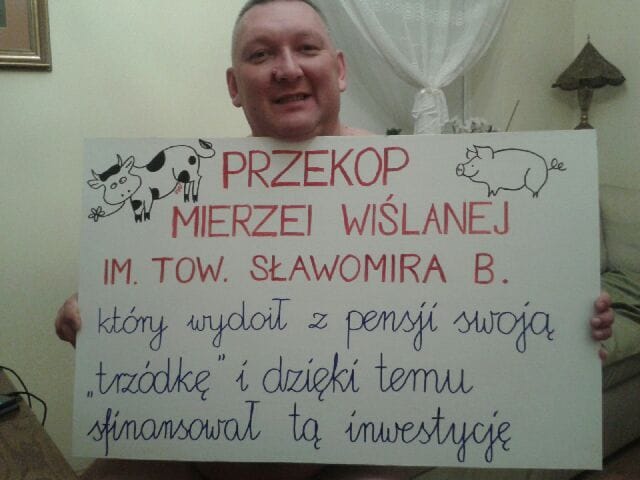 PRZEKOP
MIERZEI WIŚLANEJ
IM. TOW. SŁAWOMIRA B.
który wydoił z pensji swoją
„trzódkę" i dzięki temu
sfinansował tą inwestycję